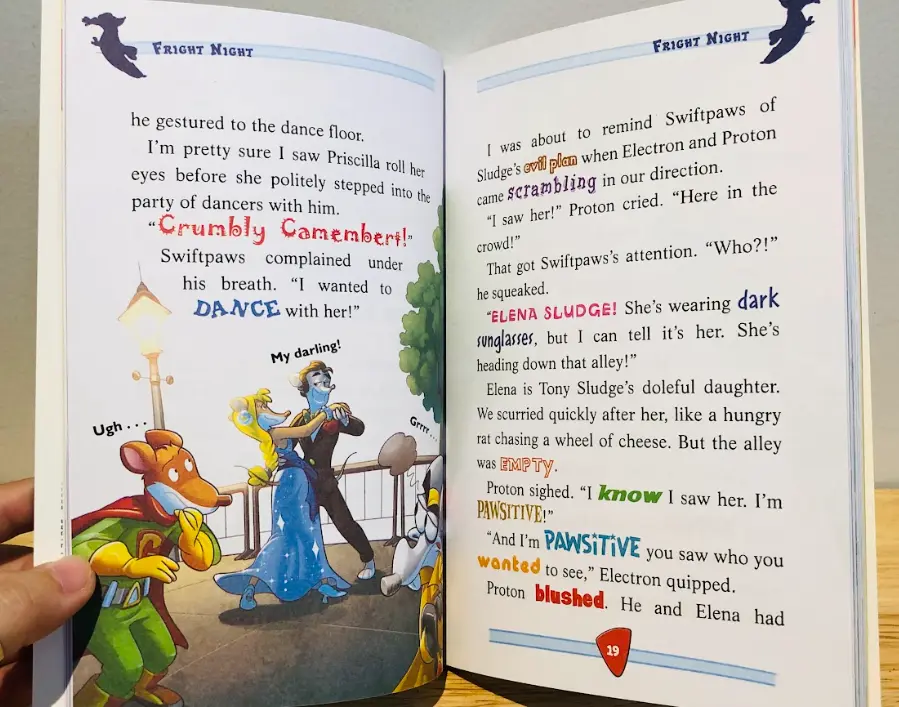 FRIGHT NIGHT
he gestured to the dance floor.
I'm pretty sure I saw Priscilla roll her
eyes before she politely stepped into the
party of dancers with him.
“Crumbly Camembert!”
Swiftpaws complained under
his breath. “I wanted to
DANCE with her!”
My darling!
Ugh . . .
Grrr . . .
FRIGHT NIGHT
I was about to remind Swiftpaws of
Sludge's evil plan when Electron and Proton
came scrambling in our direction.
“I saw her!” Proton cried. “Here in the
crowd!”
That got Swiftpaws's attention. “Who?!”
he squeaked.
“ELENA SLUDGE! She's wearing dark
sunglasses, but I can tell it's her. She's
heading down that alley!”
Elena is Tony Sludge's doleful daughter.
We scurried quickly after her, like a hungry
rat chasing a wheel of cheese. But the alley
was EMPTY.
Proton sighed. “I know I saw her. I'm
PAWSITIVE!”
“And I'm PAWSITIVE you saw who you
wanted to see,” Electron quipped.
Proton blushed. He and Elena had
19